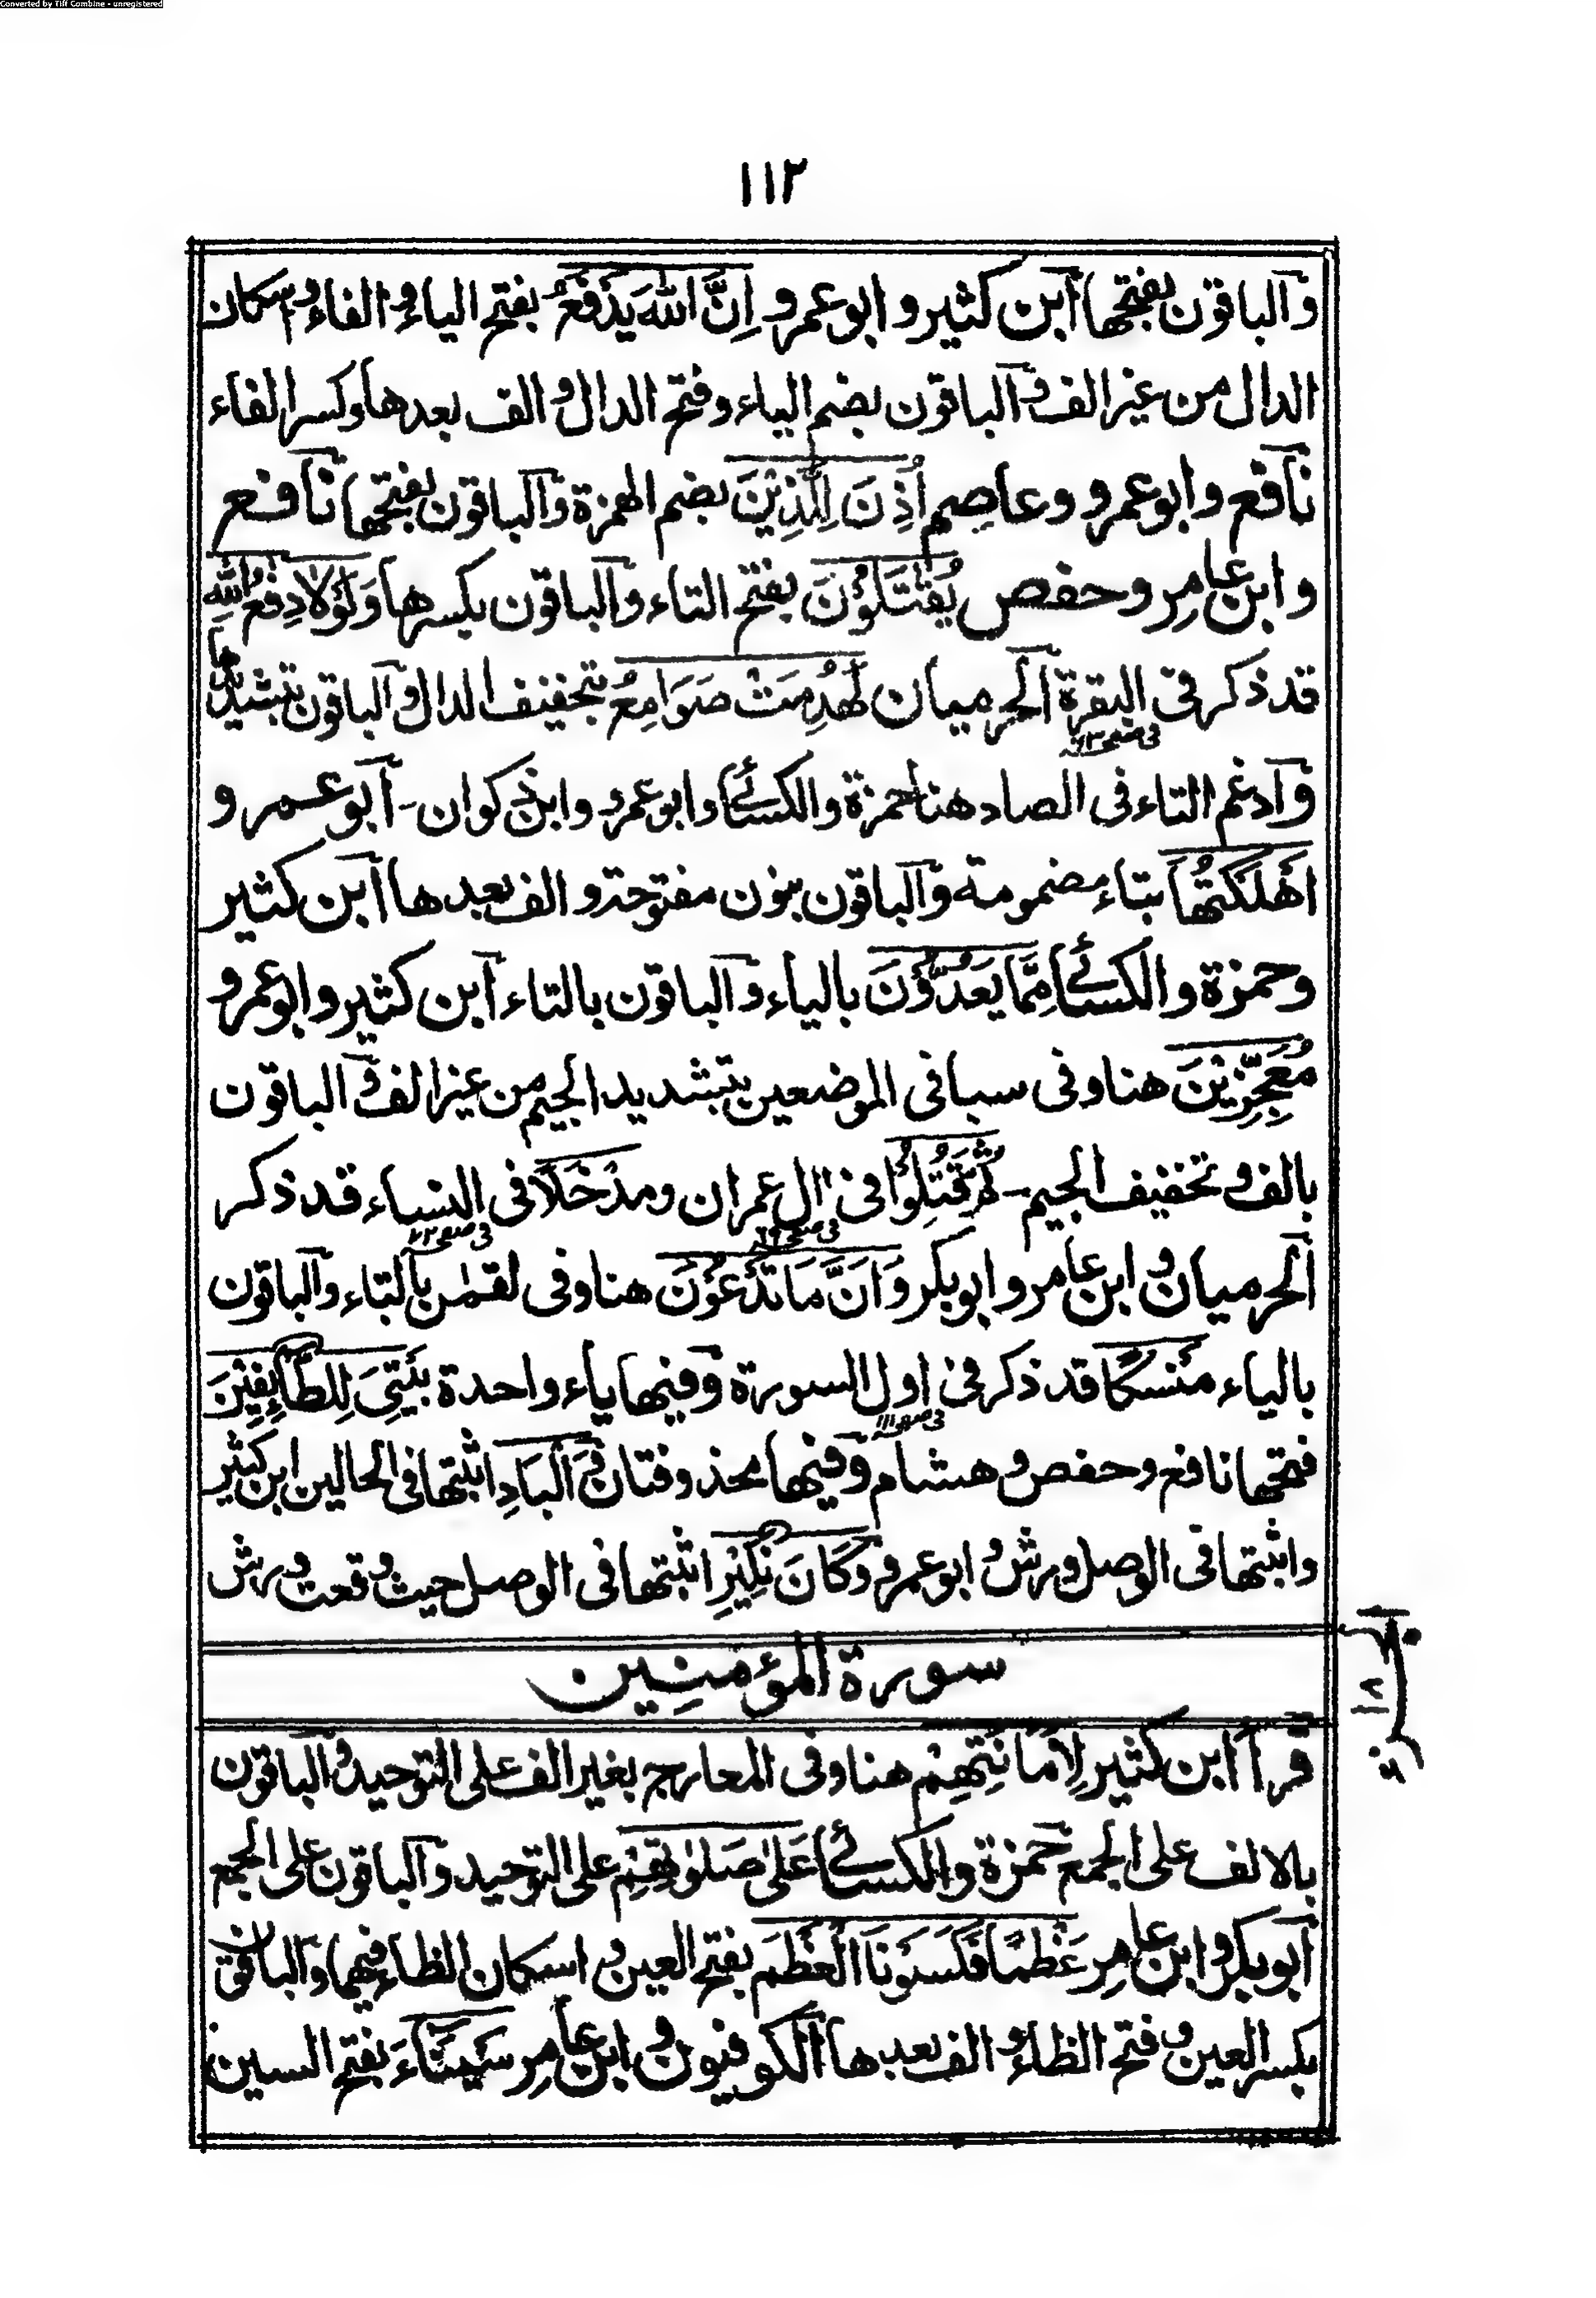 Converted by Tiff Combine - unregistered
١١٢
والباقون بفتحها ابن كثير و ابو عمرو اِنَّ اللهَ يَدْفَعُ بفتح الياء و الفاء و اسكان
الدال من غير الف و الباقون بضم الياء و فتح الدال و الف بعدها و كسر الفاء
نافع و ابو عمرو و عاصم اُذِنَ لِلَّذِيْنَ بضم الهمزة و الباقون بفتحها نافع
و ابن عامِر و حفص يُقٰتَلُوْنَ بفتح التاء و الباقون بكسرها وَلَوْلَا دِفٰعُ اللهِ
قد ذكر فى البقرة الحرميان لَهُدِمَتْ صَوَامِعُ بتخفيف الدال و الباقون بتشديدها
فى صفحه ٦٣
و ادغم التاء فى الصاد هنا حمزة و الكسائى و ابو عمرو و ابن ذكوان - ابو عمرو
اَهْلَكْتُهَا بتاء مضمومة و الباقون بنون مفتوحة و الف بعدها ابن كثير
و حمزة و الكسائى مِمَّا يَعُدُّوْنَ بالياء و الباقون بالتاء ابن كثير و ابو عمرو
مُعَجِّزِيْنَ هنا و فى سبا فى الموضعين بتشديد الجيم من غير الف و الباقون
بالف و تخفيف الجيم - ثُمَّ قُتِلُوْا فى اٰل عمران و مدْخَلًا فى النساء قد ذكر
الحرميان و ابن عامر و ابو بكر وَاَنَّ مَا تَدْعُوْنَ هنا و فى لقمٰن بالتاء و الباقون
بالياء مَنْسَكًا قد ذكر فى اول السورة و فيها ياء واحدة بَيْتِىَ لِلطَّآئِفِيْنَ
فى صفحه ١١١
فتحها نافع و حفص و هشام و فيها محذوفتان وَ الْبَادِ اثبتها فى الحالين ابن كثير
و اثبتها فى الوصل ورش و ابو عمرو و كَانَ نَكِيْرِ اثبتها فى الوصل حيث وقعت ورش
سورة المؤمنين
١٨
قرأ ابن كثير لِاَمَانَتِهِمْ هنا و فى المعارج بغير الف على التوحيد و الباقون
بالالف على الجمع حمزة و الكسائى عَلٰى صَلٰوتِهِمْ على التوحيد و الباقون على الجمع
ابو بكر و ابن عامِر عَظْمًا فَكَسَوْنَا الْعَظْمَ بفتح العين و اسكان الظاء فيهما و الباقون
بكسر العين و فتح الظاء و الف بعدها الكوفيون و ابن عامِر سَيْنَآءَ بفتح السين